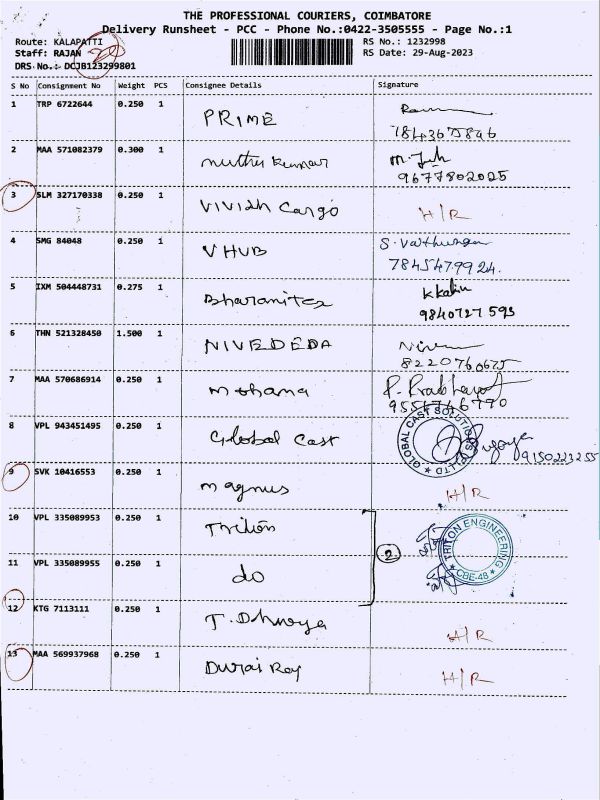 THE PROFESSIONAL COURIERS, COIMBATORE
Delivery Runsheet - PCC - Phone No.:0422-3505555 - Page No.:1
Route: KALAPATTI RS No.: 1232998
Staff: RAJAN RS Date: 29-Aug-2023
DRS No.: DCJB123299801
S No Consignment No Weight PCS Consignee Details Signature
1 TRP 6722644 0.250 1 PRIME
2 MAA 571082379 0.300 1 muthu kumar
9677802025
3 SLM 327170338 0.250 1 VIVISh Cargo H/R
4 SMG 84048 0.250 1 VHUB
7845479924.
5 IXM 504448731 0.275 1
9840727593
6 THN 521328450 1.500 1 NIVEDEDA
8220760675
7 MAA 570686914 0.250 1 mohana
8 VPL 943451495 0.250 1 Global Cast GLOBAL CAST SOLUTIONS (P) LTD
9150223255
9 SVK 10416553 0.250 1 magnus H/R
10 VPL 335089953 0.250 1 Triton 2 TRITON ENGINEERING CBE-48
11 VPL 335089955 0.250 1 do
12 KTG 7113111 0.250 1 H/R
13 MAA 569937968 0.250 1 Durai Raj H/R